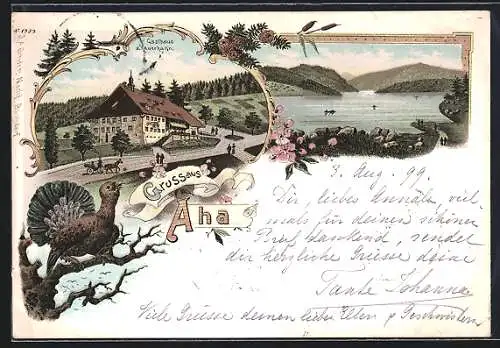 Gasthaus
z. Auerhahn.
Gruss aus
Aha
3. Aug. 99.
Dir, liebes Annäle, viel-
mals für deinen schönen
Brief dankend, sendet
dir herzliche Grüsse deine
Tante Johanna
Viele Grüsse deinen lieben Eltern & Geschwistern